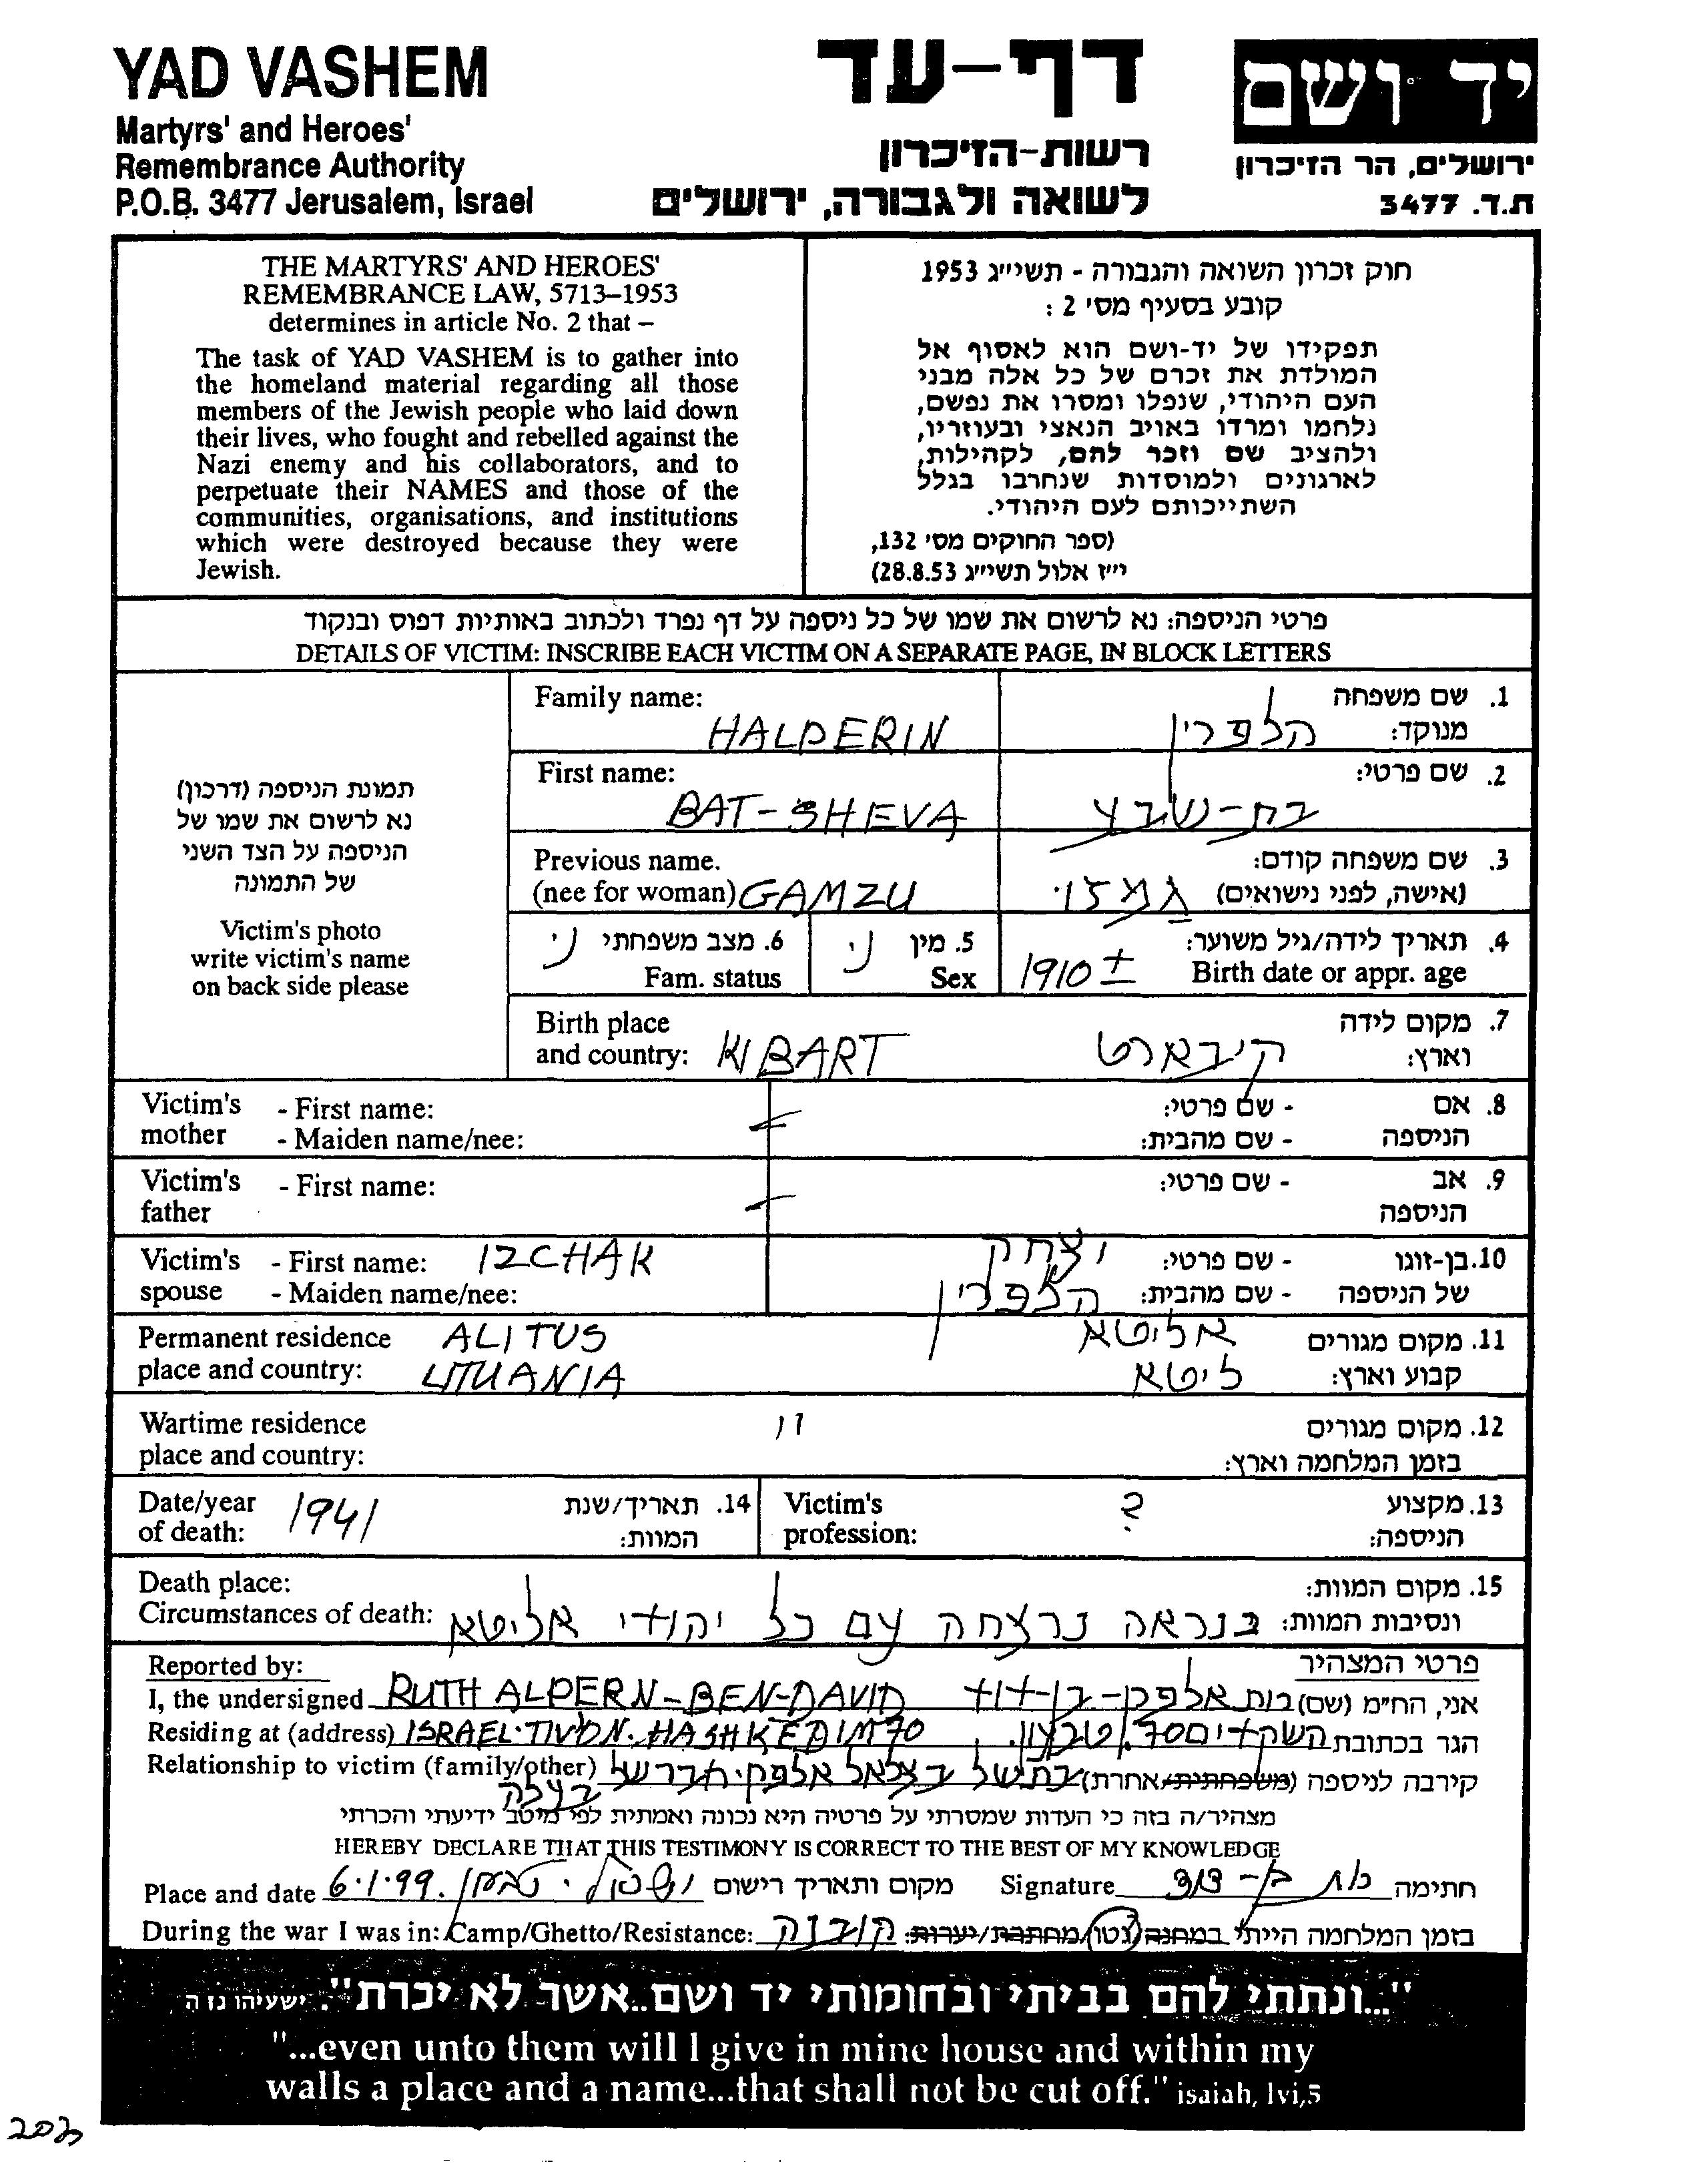 YAD VASHEM
Martyrs' and Heroes'
Remembrance Authority
P.O.B. 3477 Jerusalem, Israel
דף-עד
רשות-הזיכרון
לשואה ולגבורה, ירושלים
יד ושם
ירושלים, הר הזיכרון
ת.ד. 3477
THE MARTYRS' AND HEROES'
REMEMBRANCE LAW, 5713–1953
determines in article No. 2 that –
The task of YAD VASHEM is to gather into
the homeland material regarding all those
members of the Jewish people who laid down
their lives, who fought and rebelled against the
Nazi enemy and his collaborators, and to
perpetuate their NAMES and those of the
communities, organisations, and institutions
which were destroyed because they were
Jewish.
חוק זכרון השואה והגבורה - תשי״ג 1953
קובע בסעיף מס׳ 2 :
תפקידו של יד-ושם הוא לאסוף אל
המולדת את זכרם של כל אלה מבני
העם היהודי, שנפלו ומסרו את נפשם,
נלחמו ומרדו באויב הנאצי ובעוזריו,
ולהציב שם וזכר להם, לקהילות,
לארגונים ולמוסדות שנחרבו בגלל
השתייכותם לעם היהודי.
(ספר החוקים מס׳ 132,
י״ז אלול תשי״ג 28.8.53)
פרטי הניספה: נא לרשום את שמו של כל ניספה על דף נפרד ולכתוב באותיות דפוס ובנקוד
DETAILS OF VICTIM: INSCRIBE EACH VICTIM ON A SEPARATE PAGE, IN BLOCK LETTERS
תמונת הניספה (דרכון)
נא לרשום את שמו של
הניספה על הצד השני
של התמונה
Victim's photo
write victim's name
on back side please
Family name: HALPERIN
1. שם משפחה מנוקד: הלפרין
First name: BAT-SHEVA
2. שם פרטי: בת-שבע
Previous name.
(nee for woman) GAMZU
3. שם משפחה קודם:
(אישה, לפני נישואים) גמזו
6. מצב משפחתי נ׳
Fam. status
5. מין נ׳
Sex
4. תאריך לידה/גיל משוער:
Birth date or appr. age 1910 ±
Birth place
and country: KIBART
7. מקום לידה
וארץ: קיבארט
Victim's mother - First name:
- Maiden name/nee:
8. אם הניספה - שם פרטי:
- שם מהבית:
Victim's father - First name:
9. אב הניספה - שם פרטי:
Victim's spouse - First name: IZCHAK
- Maiden name/nee:
10. בן-זוגו של הניספה - שם פרטי: יצחק
- שם מהבית: הלפרין
Permanent residence ALITUS
place and country: LITUANIA
11. מקום מגורים אליטא
קבוע וארץ: ליטא
Wartime residence
place and country: 〃
12. מקום מגורים
בזמן המלחמה וארץ:
Date/year
of death: 1941
14. תאריך/שנת
המוות:
Victim's
profession: ?
13. מקצוע
הניספה:
Death place:
Circumstances of death:
15. מקום המוות:
ונסיבות המוות: בנראה נרצחה עם כל יהודי אליטא
Reported by:
פרטי המצהיר
I, the undersigned RUTH ALPERN-BEN-DAVID
אני, הח״מ (שם) רות אלפרן-בן-דוד
Residing at (address) ISRAEL. TIVON. HASHKEDIM 70
הגר בכתובת השקדים 70, טבעון.
Relationship to victim (family/other)
קירבה לניספה (משפחתית/אחרת) בת של בצלאל אלפרן. חבר של
בעלה
מצהיר/ה בזה כי העדות שמסרתי על פרטיה היא נכונה ואמתית לפי מיטב ידיעתי והכרתי
HEREBY DECLARE THAT THIS TESTIMONY IS CORRECT TO THE BEST OF MY KNOWLEDGE
Place and date 6.1.99. מקום ותאריך רישום
Signature רות בן-דוד חתימה
During the war I was in: Camp/Ghetto/Resistance: קובנה
בזמן המלחמה הייתי במחנה/גטו/מחתרת/יערות:
"...ונתתי להם בביתי ובחומותי יד ושם..אשר לא יכרת". ישעיהו נו ה
"...even unto them will I give in mine house and within my
walls a place and a name...that shall not be cut off." isaiah, lvi,5